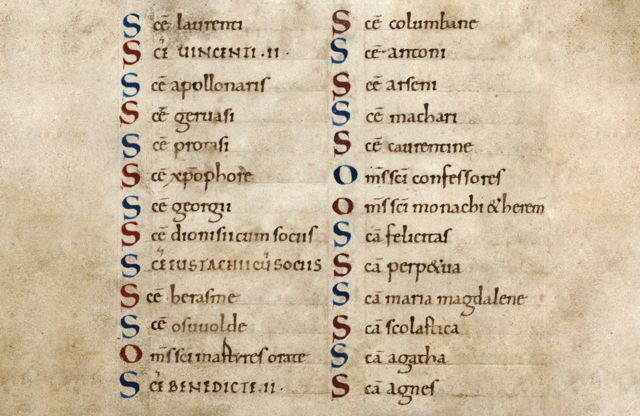 Scē laurenti
Scē VINCENTI·II·
Scē apollonaris
Scē geruasi
Scē protasi
Scē xp̄ophore
Scē georgii
Scē dionisii cum sociis
Scē EUSTACHII cū SOCIIS
Scē herasme
Scē osuuolde
Om̄s sc̄i martyres orate
Scē BENEDICTE·II·
Scē columbane
Scē antoni
Scē arseni
Scē machari
Scē caurentine
Om̄s sc̄i confessores
Om̄s sc̄i monachi & herem̄
Scā felicitas
Scā perp&ua
Scā maria magdalene
Scā scolastica
Scā agatha
Scā agnes